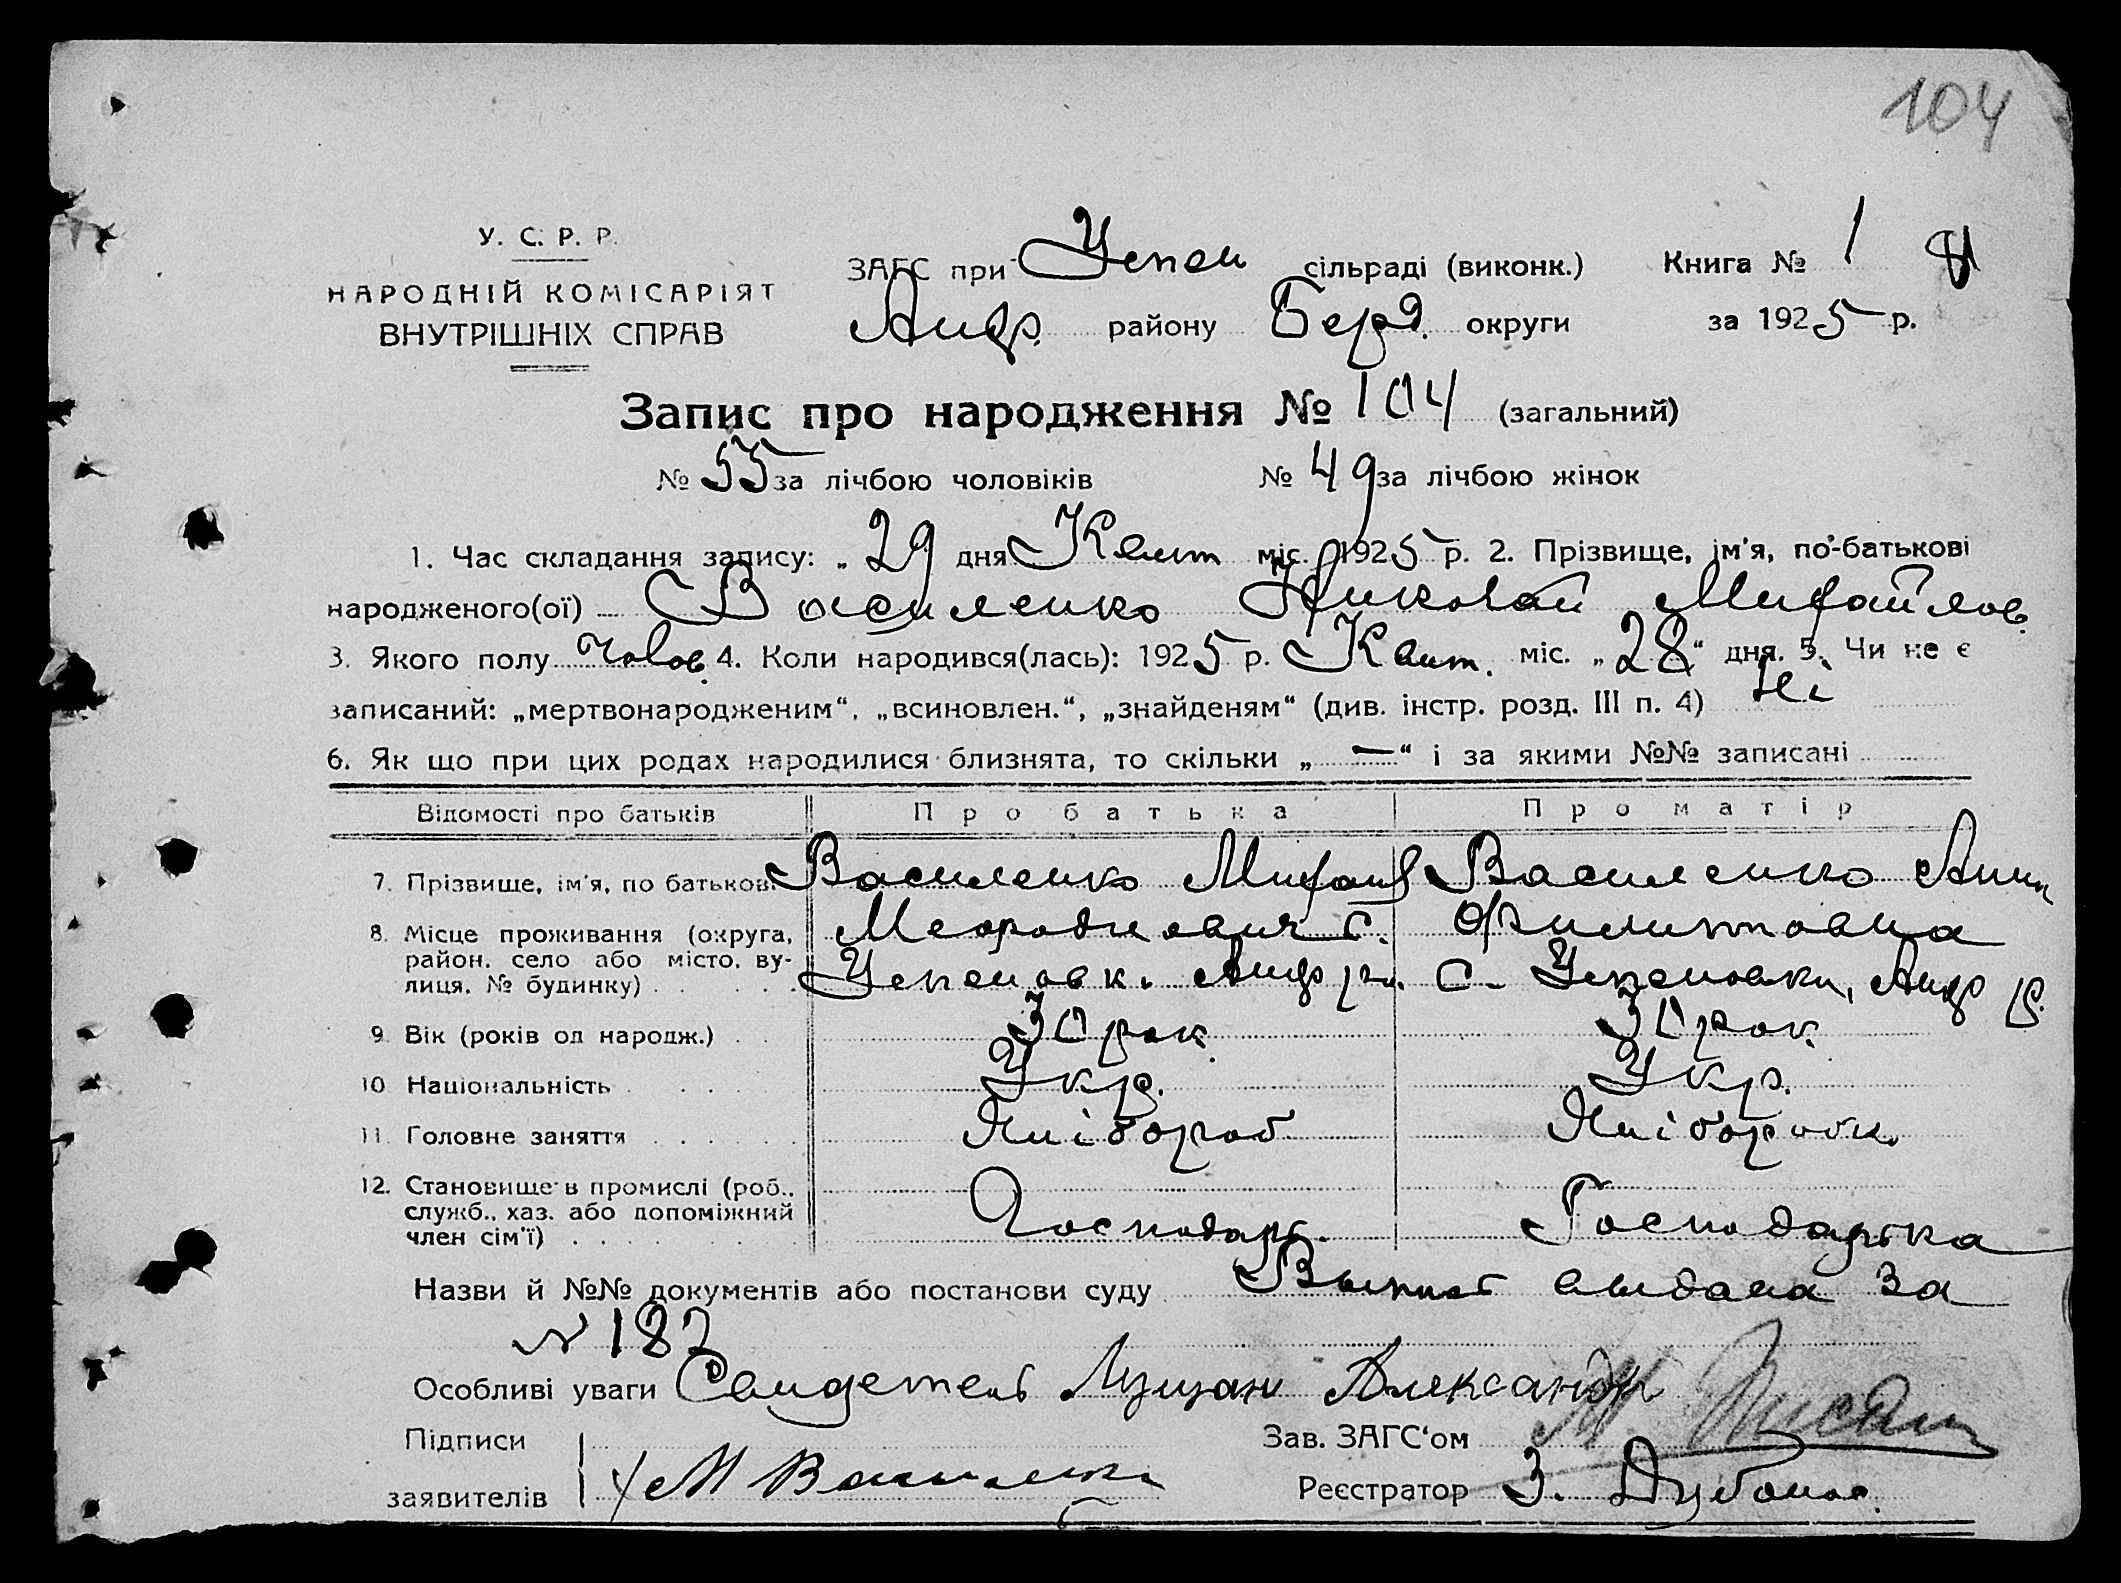 104
У. С. Р. Р.
НАРОДНІЙ КОМІСАРІЯТ
ВНУТРІШНІХ СПРАВ
ЗАГС при Успен сільраді (виконк.) Книга № 1
Андр. району Берд. округи за 1925 р.
Запис про народження № 104 (загальний)
№ 55 за лічбою чоловіків № 49 за лічбою жінок
1. Час складання запису: „ 29 дня Квит міс. 1925 р. 2. Прізвище, ім'я, по-батькові
народженого(ої) Василенко Николай Михайлов.
3. Якого полу Чолов. 4. Коли народився(лась): 1925 р. Квит. міс. „28“ дня. 5. Чи не є
записаний: „мертвонародженим“, „всиновлен.“, „знайденям“ (див. інстр. розд. III п. 4) Ні
6. Як що при цих родах народилися близнята, то скільки „ — “ і за якими №№ записані
Відомості про батьків Про батька Про матір
7. Прізвище, ім'я, по батькові Василенко Михаил Василенко Анна
8. Місце проживання (округа, район, село або місто, вулиця, № будинку) с. Успеновк. Андр р. Филиповна
с. Успеновки, Андр р.
9. Вік (років од народж.) 30 рок. 30 рок.
10. Національність Укр. Укр.
11. Головне заняття Хлібороб Хліборобк.
12. Становище в промислі (роб., Господарь. Господарька
служб., хаз. або допоміжний
член сім'ї)
Назви й №№ документів або постанови суду Выпись выдана за
N 187
Особливі уваги Свидетель Александр
Підписи Зав. ЗАГС'ом
заявителів М Василенко Реєстратор З.